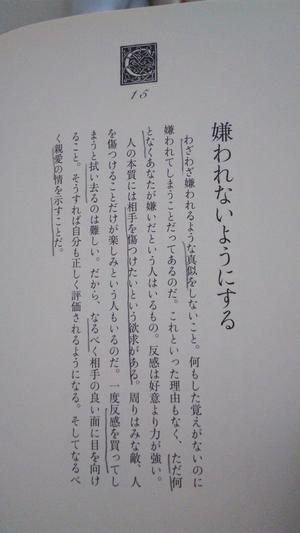 15
嫌われないようにする
わざわざ嫌われるような真似をしないこと。何もした覚えがないのに
嫌われてしまうことだってあるのだ。これといった理由もなく、ただ何
となくあなたが嫌いだという人はいるもの。反感は好意より力が強い。
人の本質には相手を傷つけたいという欲求がある。周りはみな敵、人
を傷つけることだけが楽しみという人もいるのだ。一度反感を買ってし
まうと拭い去るのは難しい。だから、なるべく相手の良い面に目を向け
ること。そうすれば自分も正しく評価されるようになる。そしてなるべ
く親愛の情を示すことだ。